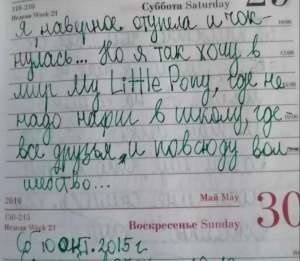 149-216
Неделя Week 21
Суббота Saturday
Я, наверное отупела и чок-
нулась... Но я так хочу в
мир My Little Pony, где не
надо нафиг в школу, где
все друзья, и повсюду вол
шебство...
2010
Май May
150-215
Неделя Week 21
Воскресенье Sunday
30
10 окт. 2015 г.